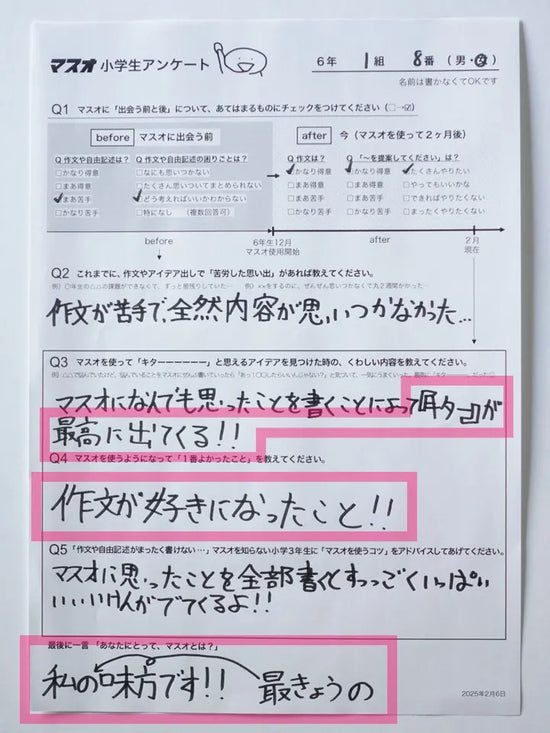 マスオ 小学生アンケート
6年 1組 8番 (男・女)
名前は書かなくてOKです
Q1 マスオに「出会う前と後」について、あてはまるものにチェックをつけてください (□→☑)
before マスオに出会う前
after 今 (マスオを使って2ヶ月後)
Q 作文や自由記述は? Q 作文や自由記述の困りごとは?
Q 作文は? Q 「〜を提案してください」は?
□かなり得意 □なにも思いつかない ☑かなり得意 ☑かなり得意 ☑たくさんやりたい
□まあ得意 □たくさん思いついてまとめられない □まあ得意 □まあ得意 □やってもいいかな
☑まあ苦手 ☑どう考えればいいかわからない □まあ苦手 □まあ苦手 □できればやりたくない
□かなり苦手 □特になし (複数回答可) □かなり苦手 □かなり苦手 □まったくやりたくない
before 6年生12月 after 2月
マスオ使用開始 現在
Q2 これまでに、作文やアイデア出しで「苦労した思い出」があれば教えてください。
作文が苦手で、全然内容が思いつかなかった…
Q3 マスオを使って「キターーーーーー」と思えるアイデアを見つけた時の、くわしい内容を教えてください。
マスオになんでも思ったことを書くことによって
が
最高に出てくる!!
Q4 マスオを使うようになって「1番よかったこと」を教えてください。
作文が好きになったこと!!
Q5 「作文や自由記述がまったく書けない…」マスオを知らない小学3年生に「マスオを使うコツ」をアドバイスしてあげてください。
マスオに思ったことを全部書くとすっっごくいっぱい
いいいけんがでてくるよ!!
最後に一言 「あなたにとって、マスオとは?」
私の味方です!! 最きょうの
2025年2月6日